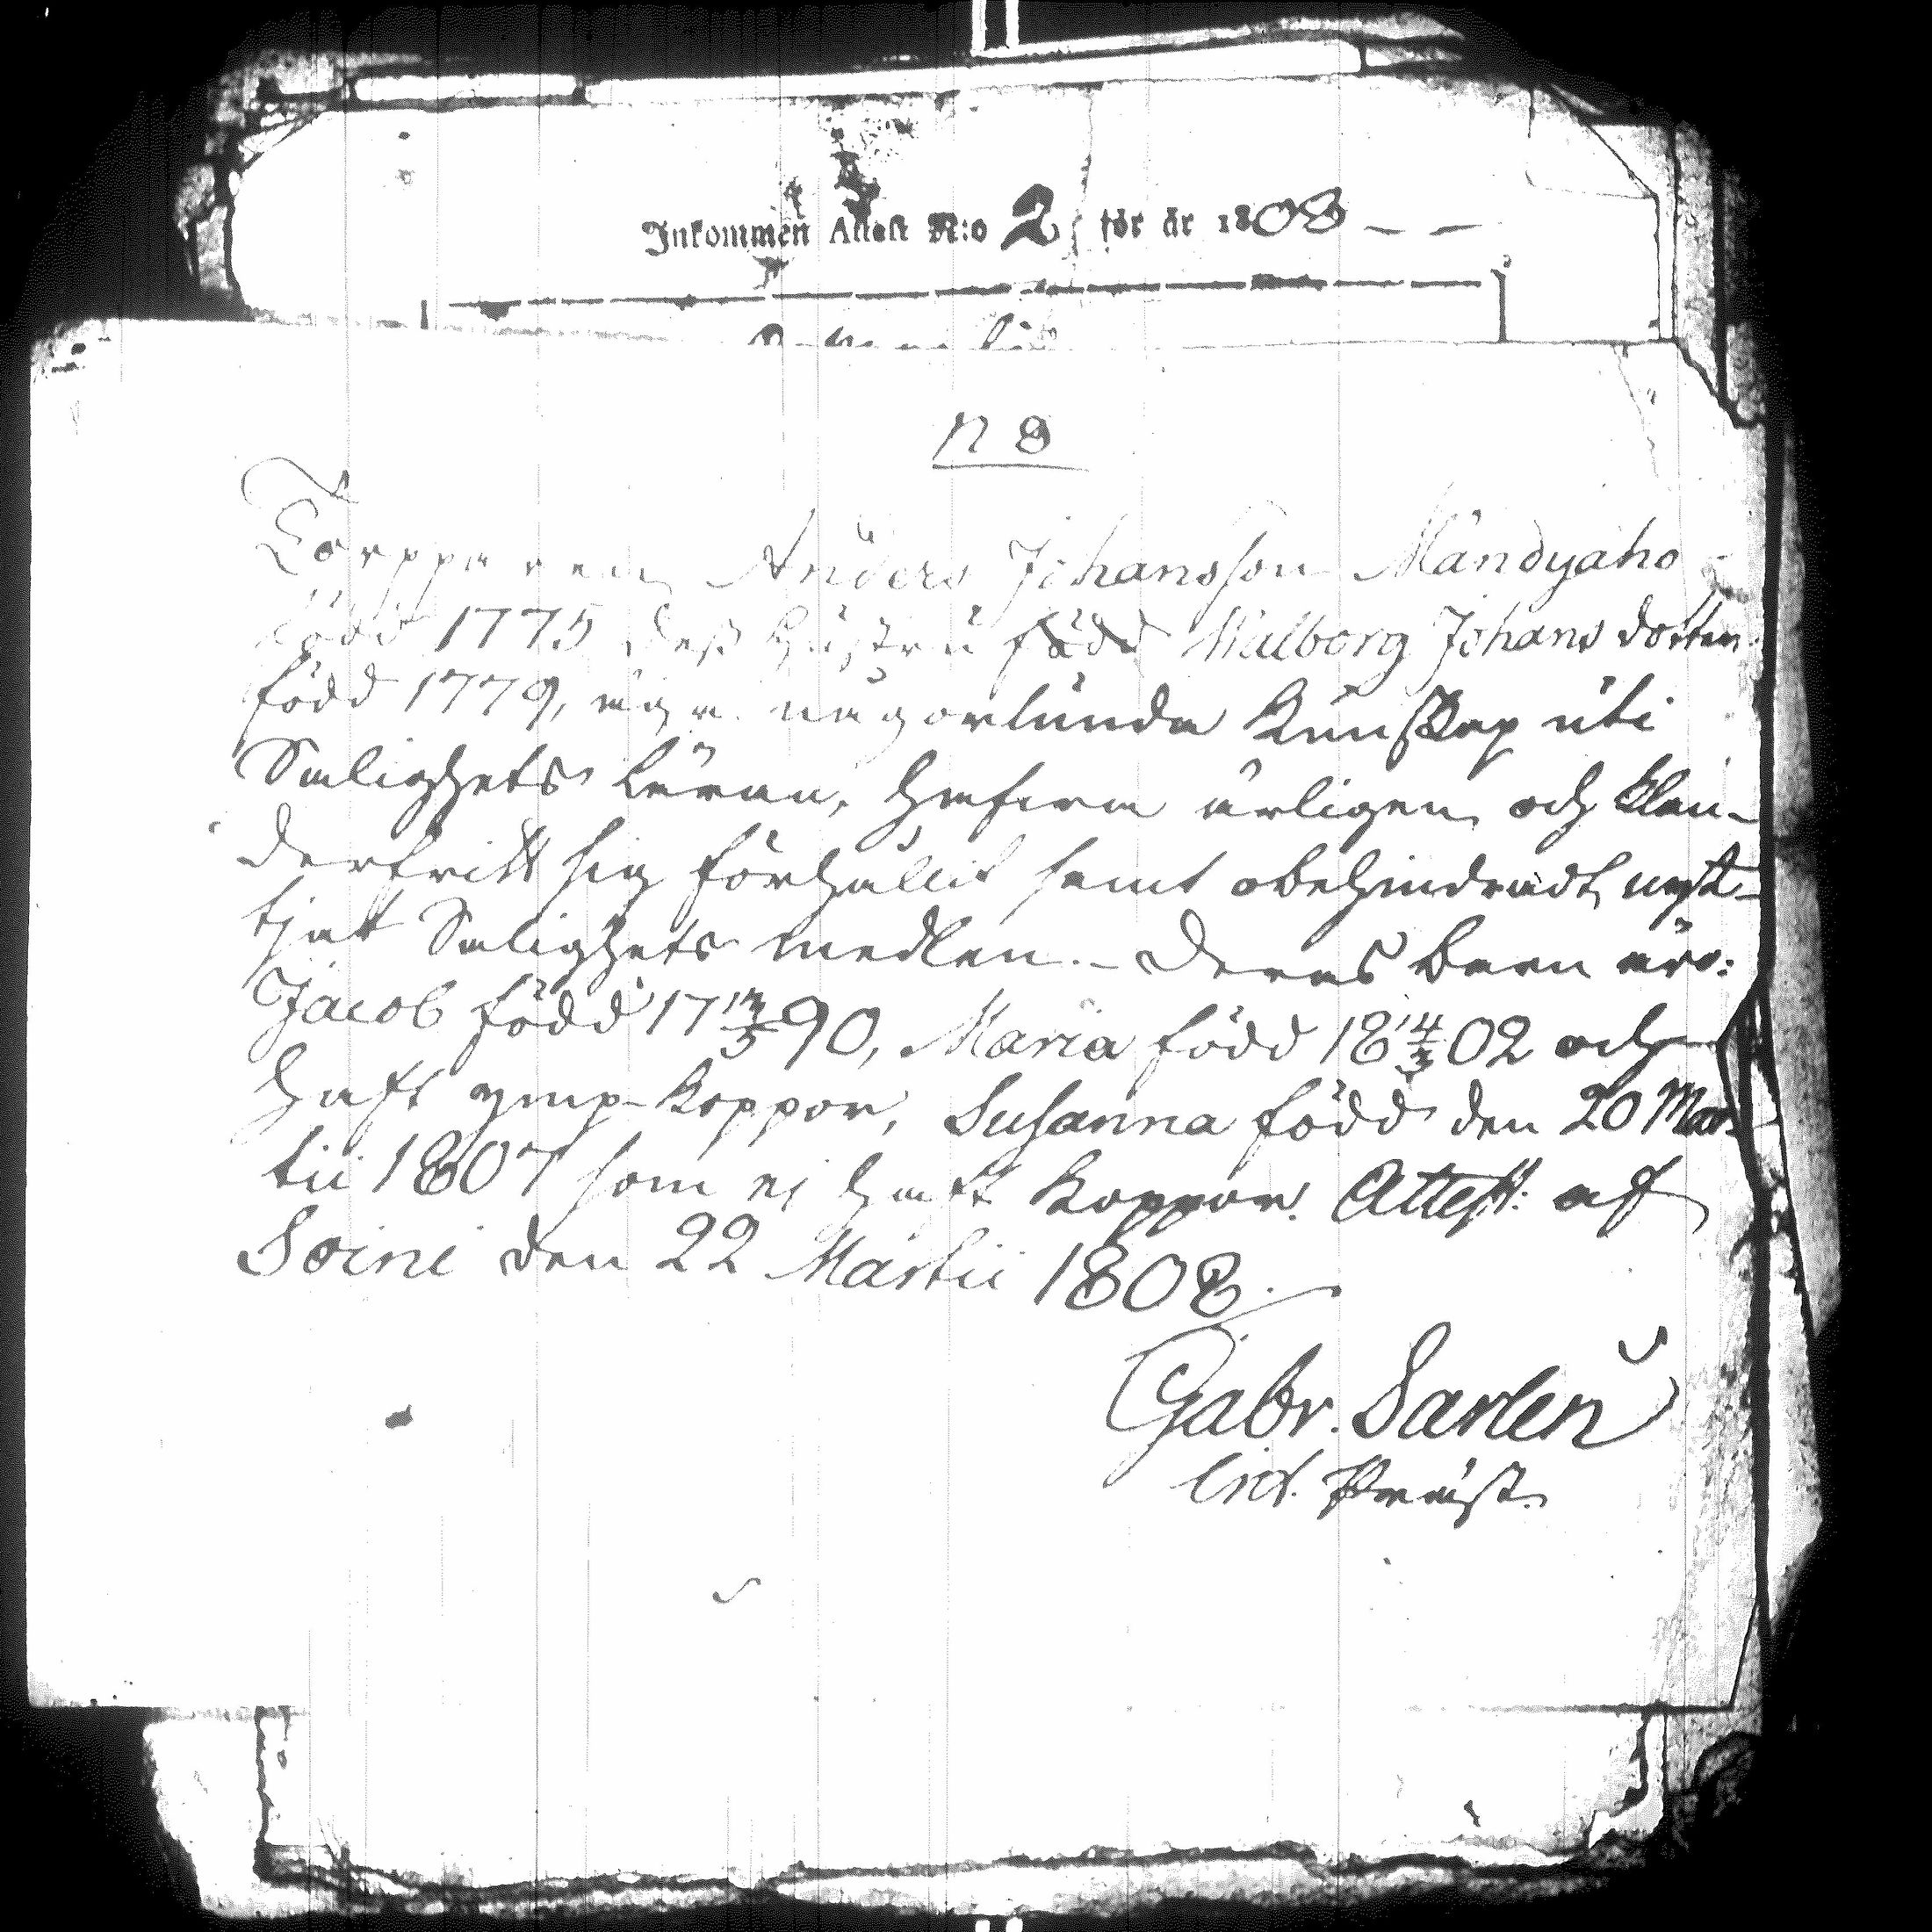 Inkommen Attest N:o 2 för år 1808 — —
N 8
Torpparen Anders Johansson Mändyaho
född 1775 dess Hustru född Walborg Johans dotter
född 1779, äga någorlunda Kunskap uti
Salighets Läran, hafwa ärligen och klan-
derfritt sig förhållit samt obehindradt nyt-
tjat Salighets medlen. – Deras barn äro:
Jacob född 17 13/5 90, Maria född 18 14/3 02 och
haft ymp-koppor, Susanna född den 20 Mar-
tii 1807 som ej haft Koppor. Attest: af
Soini den 22 Martii 1808.
Gabr. Sarlen
Ord. Präst.